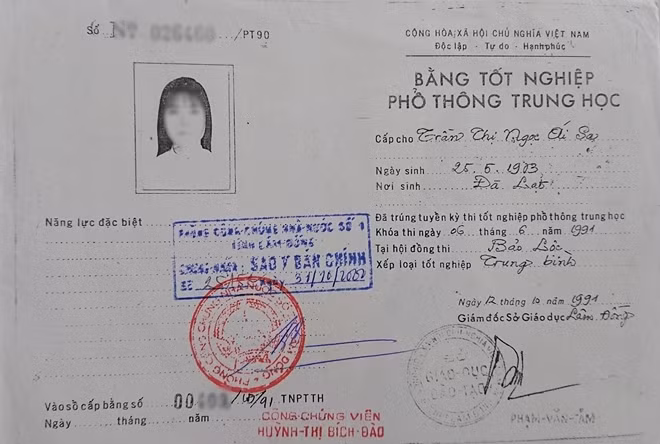 Số /PT90
CỘNG HÒA XÃ HỘI CHỦ NGHĨA VIỆT NAM
Độc lập - Tự do - Hạnh phúc
BẰNG TỐT NGHIỆP
PHỔ THÔNG TRUNG HỌC
Cấp cho Trần Thị Ngọc Ái Sa
Ngày sinh 25.5.1973
Nơi sinh Đà Lạt
Năng lực đặc biệt
Đã trúng tuyển kỳ thi tốt nghiệp phổ thông trung học
Khóa thi ngày 06 tháng 6 năm 1991
Tại hội đồng thi Bảo Lộc
Xếp loại tốt nghiệp Trung bình
PHÒNG CÔNG CHỨNG NHÀ NƯỚC SỐ 1
TỈNH LÂM ĐỒNG
CHỨNG NHẬN: SAO Y BẢN CHÍNH
SỐ NGÀY 31/10/2002
Ngày 12 tháng 10 năm 1991
Giám đốc Sở Giáo dục Lâm Đồng
GIÁO DỤC
ĐÀO TẠO
Vào sổ cấp bằng số 00 /91 TNPTTH
Ngày tháng năm
CÔNG CHỨNG VIÊN
HUỲNH THỊ BÍCH ĐÀO
PHẠM-VĂN-TẤM